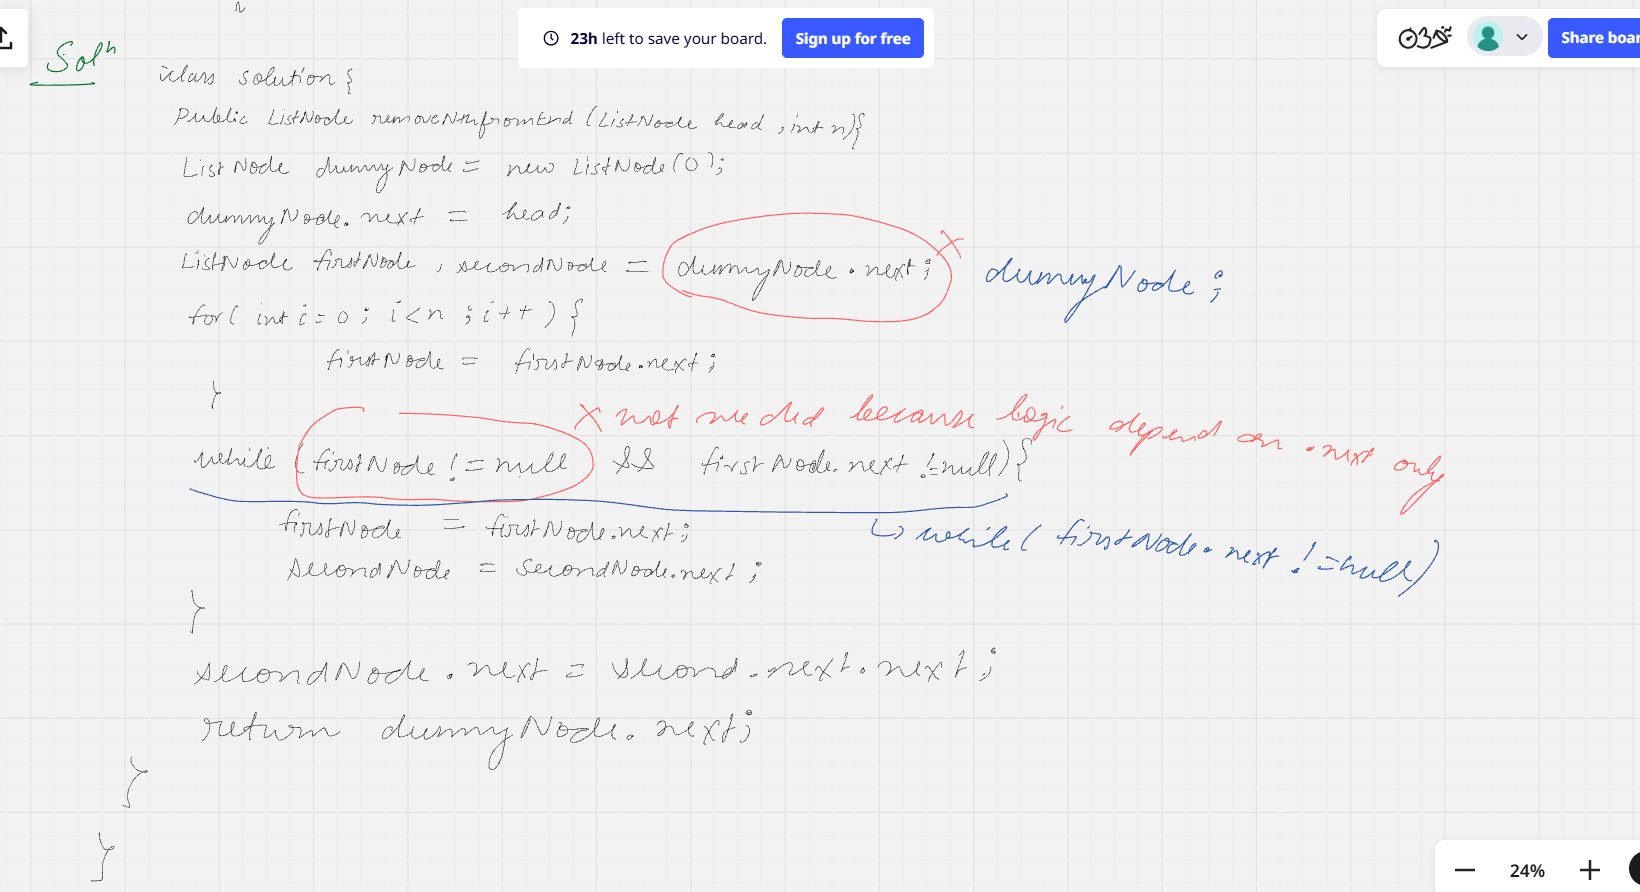 23h left to save your board.
Sign up for free
Share boar
Solⁿ
class solution {
Public ListNode removeNthfromEnd (ListNode head , int n){
ListNode dummyNode = new ListNode(0);
dummyNode.next = head;
ListNode firstNode , secondNode = dummyNode.next; X dummyNode;
for( int i=0 ; i<n ; i++ ) {
firstNode = firstNode.next;
}
X not needed because logic depend on .next only
while (firstNode != null && firstNode.next != null) {
firstNode = firstNode.next;
↳ while( firstNode.next != null)
secondNode = secondNode.next;
}
secondNode.next = second.next.next;
return dummyNode.next;
}
}
24%